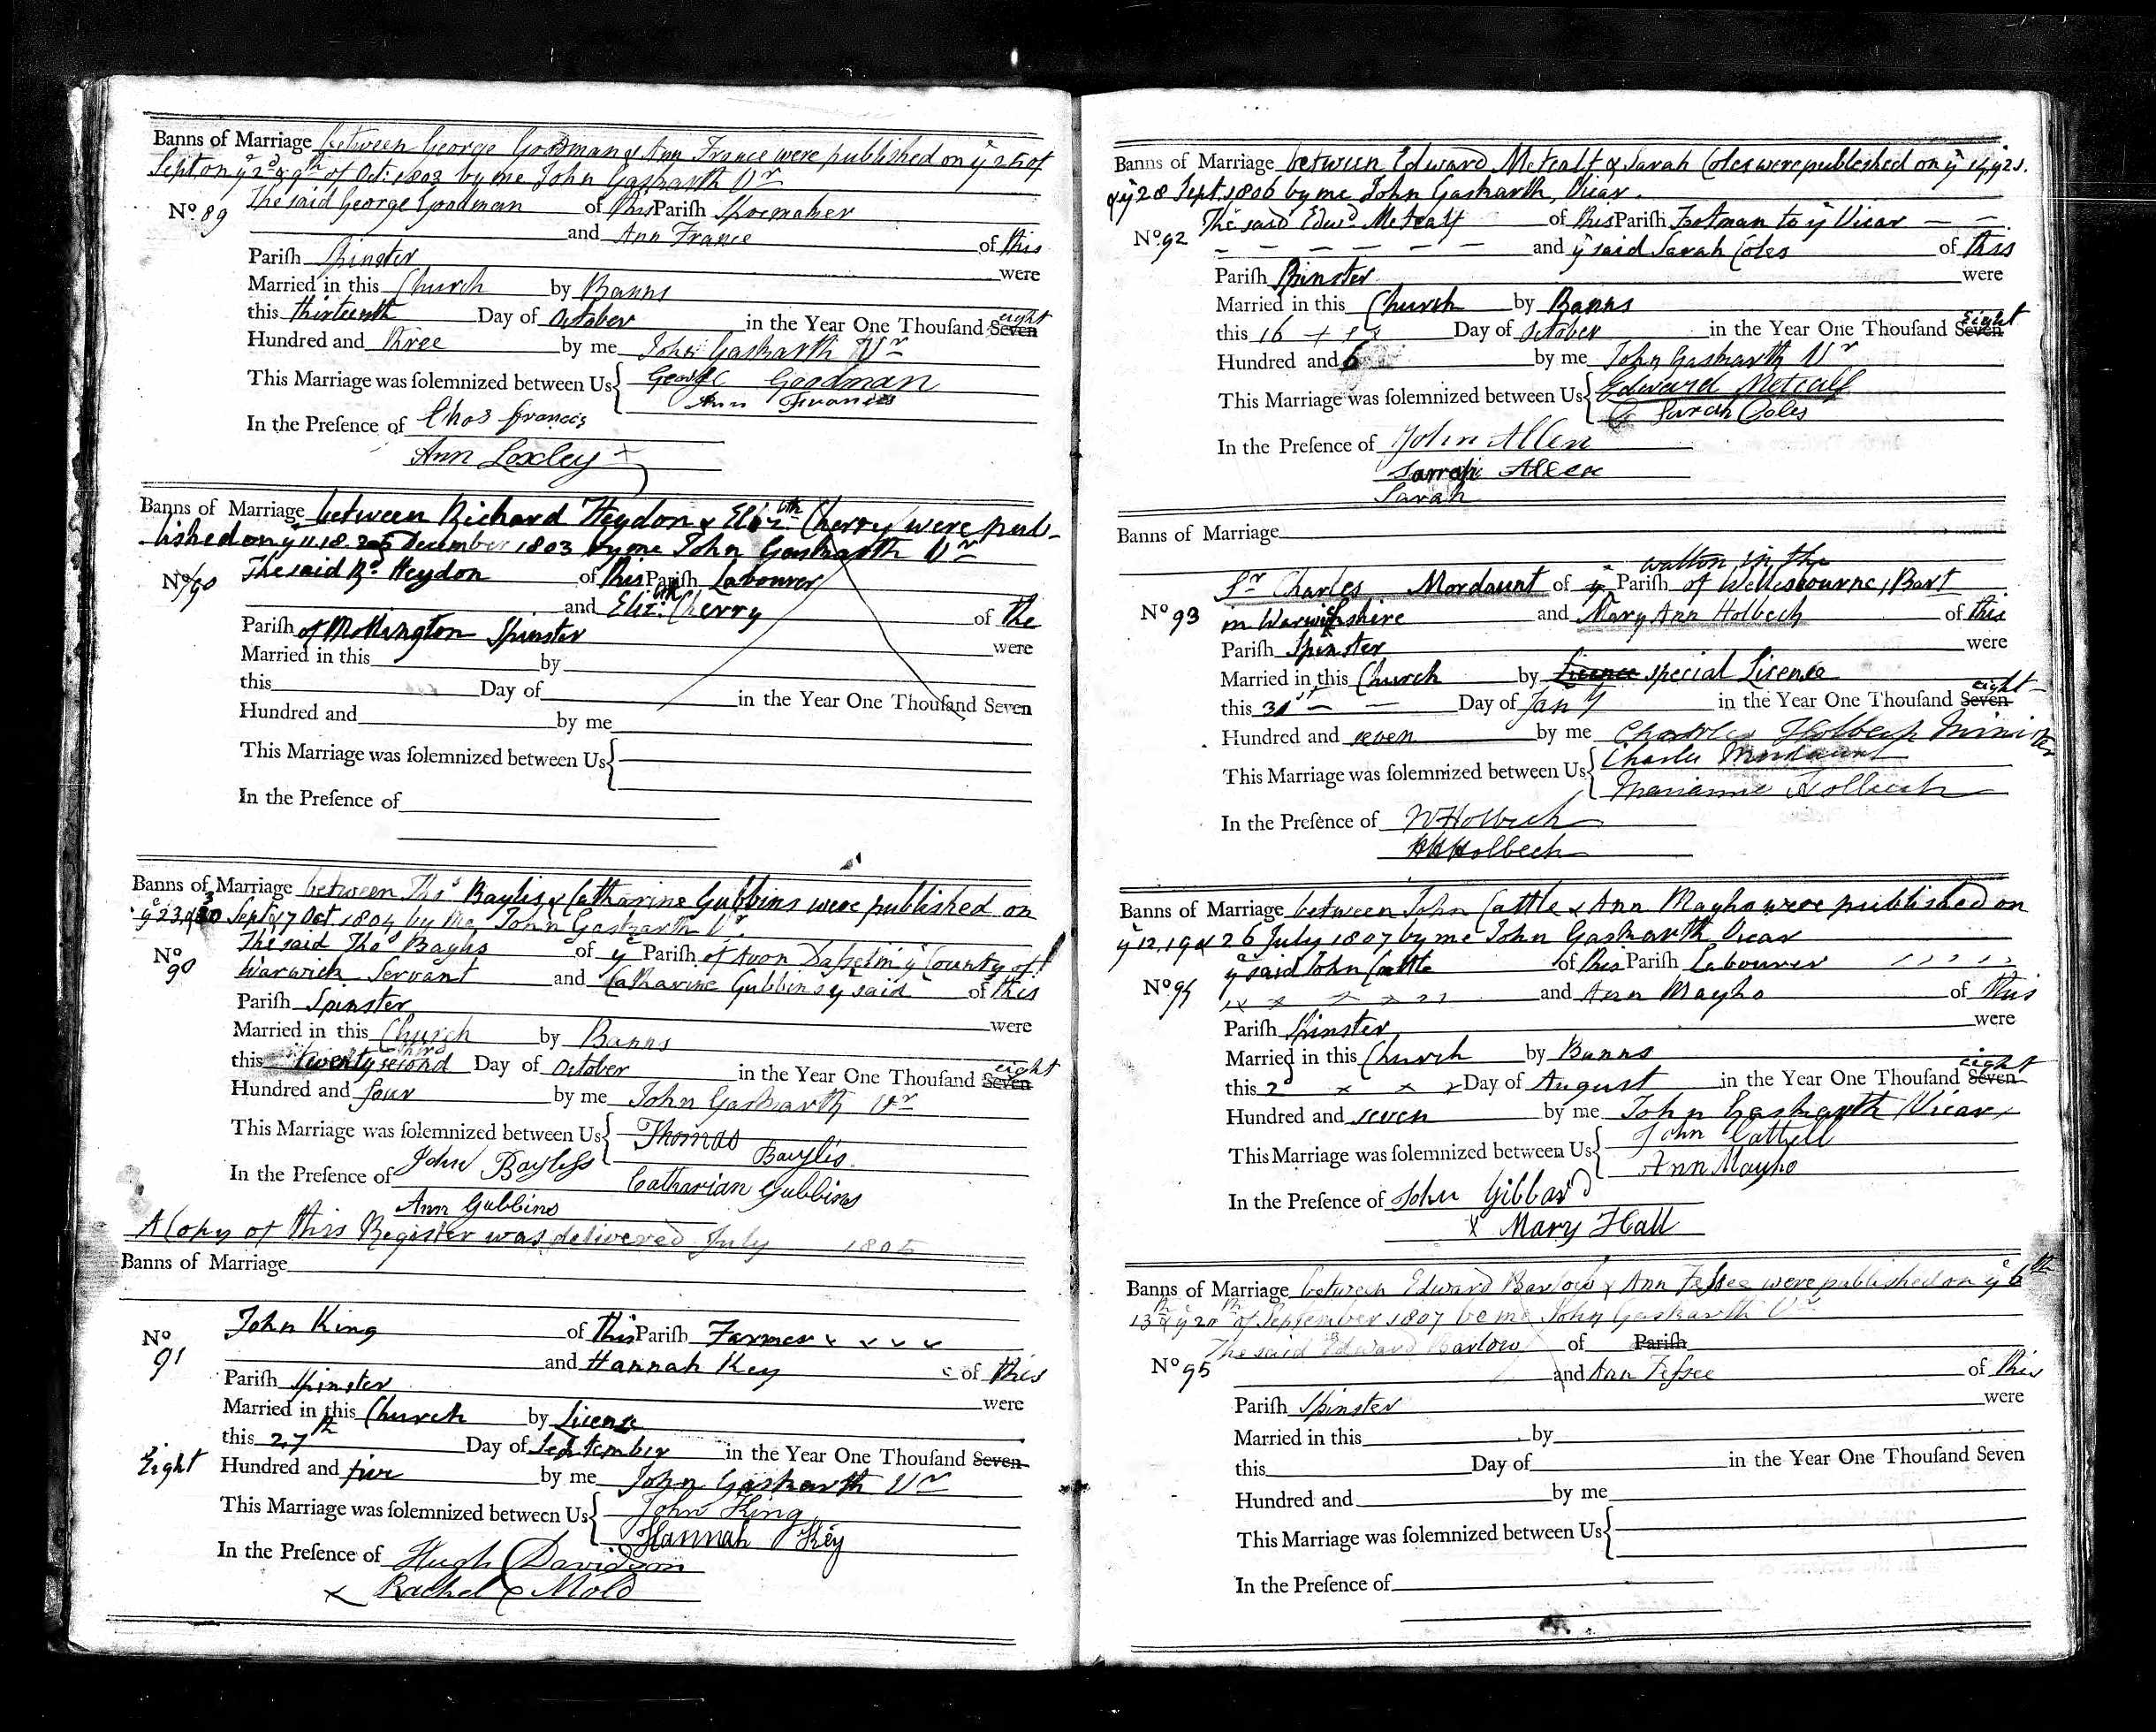 Banns of Marriage between George Goodman & Ann France were published on ye 25 of
Sept on ye 2d & 9th of Oct: 1803 by me John Gaskarth Vr
The said George Goodman of this Parish Shoemaker
No. 89
and Ann France of this
Pariſh Spinster were
Married in this Church by Banns
this thirteenth Day of October in the Year One Thouſand Seven eight
Hundred and three by me John Gaskarth Vr
This Marriage was ſolemnized between Us George Goodman
Ann Francis
In the Preſence of Thos Francis
Ann Loxley
Banns of Marriage between Richard Heydon & Elizth Cherry were pub-
lished on ye 11. 18. 25 December 1803 by me John Gaskarth Vr
No 90 The said Rd. Heydon of this Pariſh Labourer
and Elizth Cherry of the
Pariſh of Mollington Spinster were
Married in this by
this Day of in the Year One Thouſand Seven
Hundred and by me
This Marriage was ſolemnized between Us
In the Preſence of
Banns of Marriage between Thos Baylis & Catharine Gubbins were published on
ye 23, & 30 Sept & 7 Oct. 1804 by me John Gaskarth Vr.
The said Thos Baylis of ye Pariſh of Avon Dassett in ye County of
No 90
Warwick Servant and Catharine Gubbins ye said of this
Pariſh Spinster were
Married in this Church by Banns
this twenty second Day of October in the Year One Thouſand Seven eight
Hundred and four by me John Gaskarth Vr
This Marriage was ſolemnized between Us Thomas Baylis
In the Preſence of John Bayliss Catharian Gubbins
Ann Gubbins
A Copy of this Register was delivered July 1805
Banns of Marriage
John King of this Pariſh Farmer
No 91
and Hannah Key of this
Pariſh Spinster were
Married in this Church by License
this 27th Day of September in the Year One Thouſand Seven
Eight Hundred and five by me John Gaskarth Vr
This Marriage was ſolemnized between Us John King
Hannah Key
In the Preſence of Hugh Davidson
x Rachel Mold
Banns of Marriage between Edward Metcalf & Sarah Coles were published on ye 14, ye 21.
& ye 28 Sept. 1806 by me John Gaskarth, Vicar.
The said Edwd. Metcalf of this Pariſh Footman to ye Vicar
No. 92
and ye said Sarah Coles of this
Pariſh Spinster were
Married in this Church by Banns
this 16 Day of October in the Year One Thouſand Seven Eight
Hundred and 6 by me John Gaskarth Vr
This Marriage was ſolemnized between Us Edward Metcalf
Sarah Coles
In the Preſence of John Allen
Sarrah Allen
Sarah
Banns of Marriage
walton in the
Sr Charles Mordaunt of ye Pariſh of Wellesbourne, Bart
No 93 in Warwickshire and Mary Ann Holbech of this
Pariſh Spinster were
Married in this Church by Licence special License
this 31st Day of Jany in the Year One Thouſand Seven eight
Hundred and seven by me Charles Holbech Minister
This Marriage was ſolemnized between Us Charles Mordaunt
Marianne Holbech
In the Preſence of W Holbech
Holbech
Banns of Marriage between John Cattle & Ann Mayho were published on
ye 12, 19 & 26 July 1807 by me John Gaskarth Vicar
ye said John Cattle of this Pariſh Labourer
No 94
and Ann Mayho of this
Pariſh Spinster were
Married in this Church by Banns
this 2d Day of August in the Year One Thouſand Seven eight
Hundred and seven by me John Gaskarth Vicar
This Marriage was ſolemnized between Us John Cattell
Ann Mayho
In the Preſence of John Gibbard
x Mary Hall
Banns of Marriage between Edward Barlow & Ann Fessee were published on ye 6th
13th & ye 20th of September 1807 be me John Gaskarth Vr
The said Edward Barlow of Pariſh
No 95
and Ann Fessee of this
Pariſh Spinster were
Married in this by
this Day of in the Year One Thouſand Seven
Hundred and by me
This Marriage was ſolemnized between Us
In the Preſence of